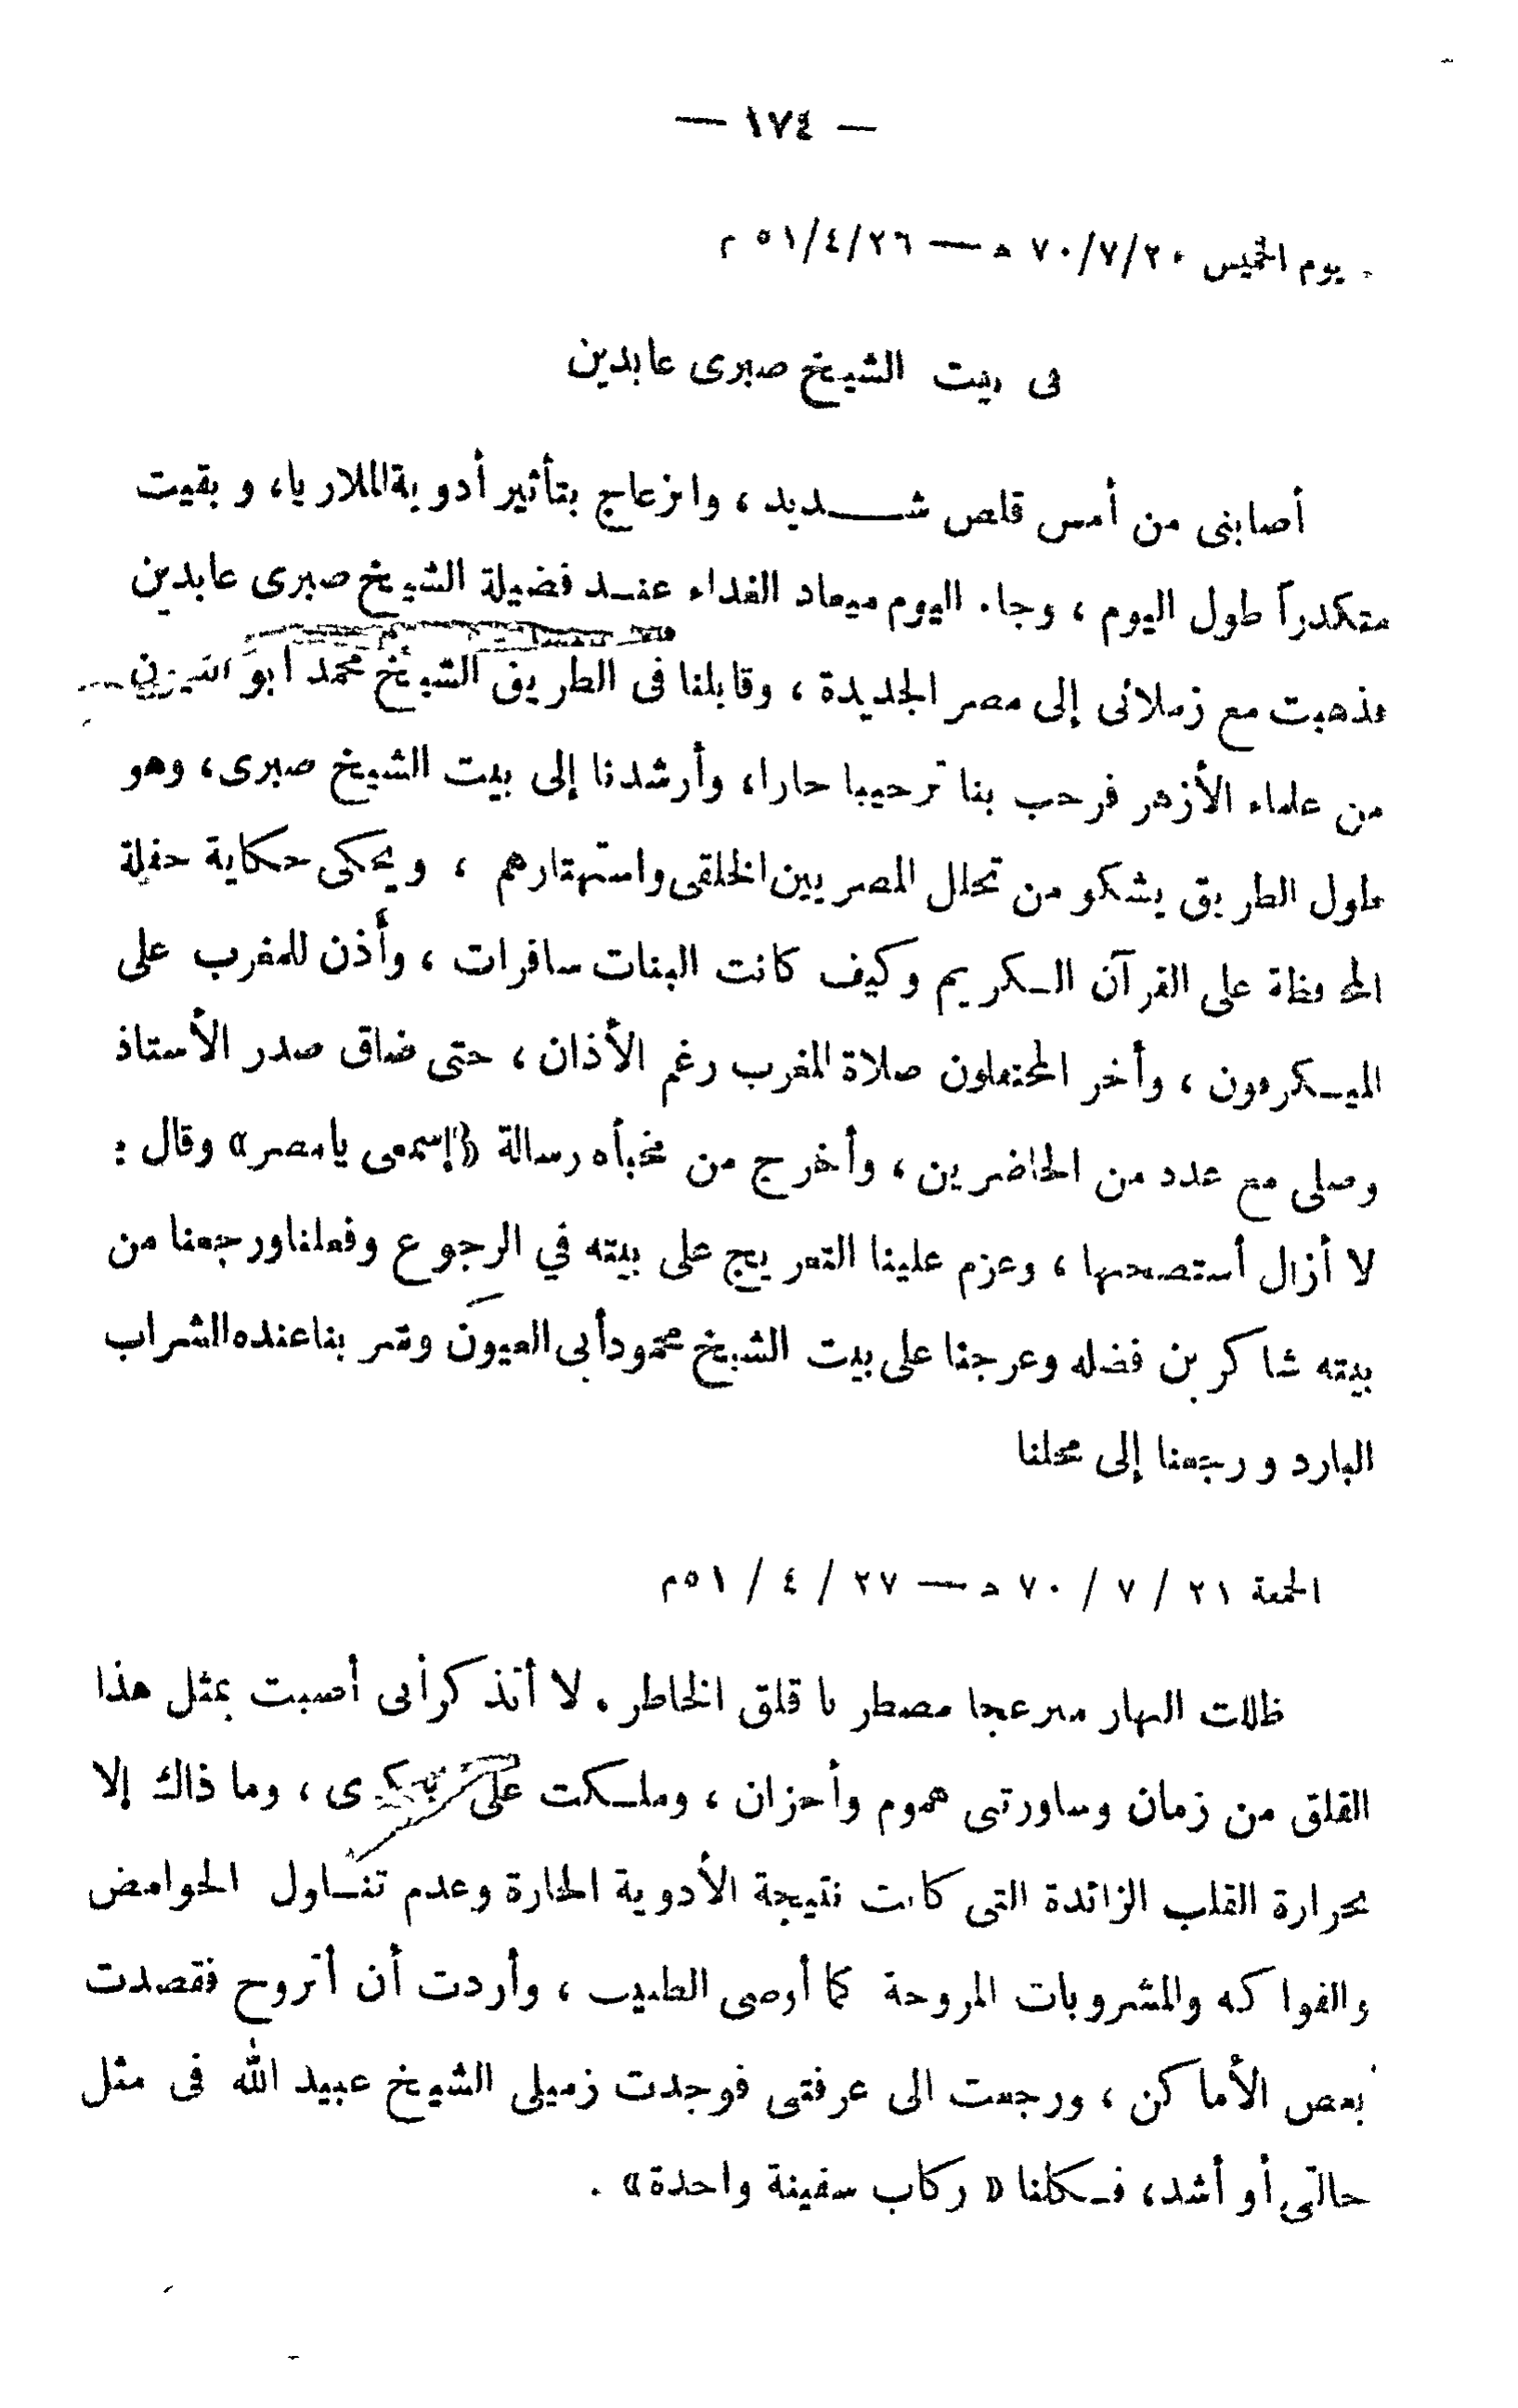 — ١٧٤ —
يوم الخميس ٧٠/٧/٢٠ هـ — ٥١/٤/٢٦ م
فى بيت الشيخ صبرى عابدين
أصابنى من أمس قلص شديد ، وانزعاج بتأثير أدوية الملاريا، وبقيت
متكدراً طول اليوم ، وجاء اليوم ميعاد الغداء عند فضيلة الشيخ صبرى عابدين
فذهبت مع زملائى إلى مصر الجديدة ، وقابلنا فى الطريق الشيخ محمد أبو
من علماء الأزهر فرحب بنا ترحيبا حارا، وأرشدنا إلى بيت الشيخ صبرى، وهو
طول الطريق يشكو من تحلل المصريين الخلقى واستهتارهم ، ويحكى حكاية حفلة
المحافظة على القرآن الكريم وكيف كانت البنات سافرات ، وأذن للمغرب على
الميكرفون ، وأخر المحتفلون صلاة المغرب رغم الأذان ، حتى ضاق صدر الأستاذ
وصلى مع عدد من الحاضرين ، وأخرج من مخبأه رسالة «إسمعى يا مصر» وقال :
لا أزال أستصحبها ، وعزم علينا التعريج على بيته في الرجوع وفعلنا ورجعنا من
بيته شاكرين فضله وعرجنا على بيت الشيخ محمود أبى العيون ومر بنا عنده الشراب
البارد ورجعنا إلى محلنا
الجمعة ٢١ / ٧ / ٧٠ هـ — ٢٧ / ٤ / ٥١م
ظللت النهار منزعجا مضطربا قلق الخاطر . لا أتذكر أنى أصبت بمثل هذا
القلق من زمان وساورتنى هموم وأحزان ، وملكت على فكرى ، وما ذاك إلا
بحرارة القلب الزائدة التى كانت نتيجة الأدوية الحارة وعدم تناول الحوامض
والفواكه والمشروبات المروحة كما أوصى الطبيب ، وأردت أن أتروح فقصدت
بعض الأماكن ، ورجعت الى غرفتى فوجدت زميلى الشيخ عبيد الله فى مثل
حالتى أو أشد، فكلنا «ركاب سفينة واحدة» .